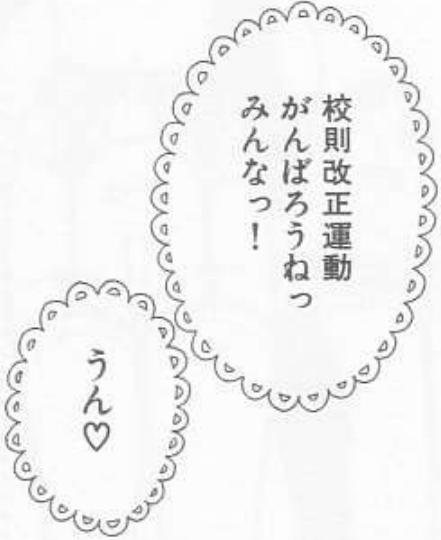 校則改正運動
がんばろうねっ
みんなっ！
うん♡